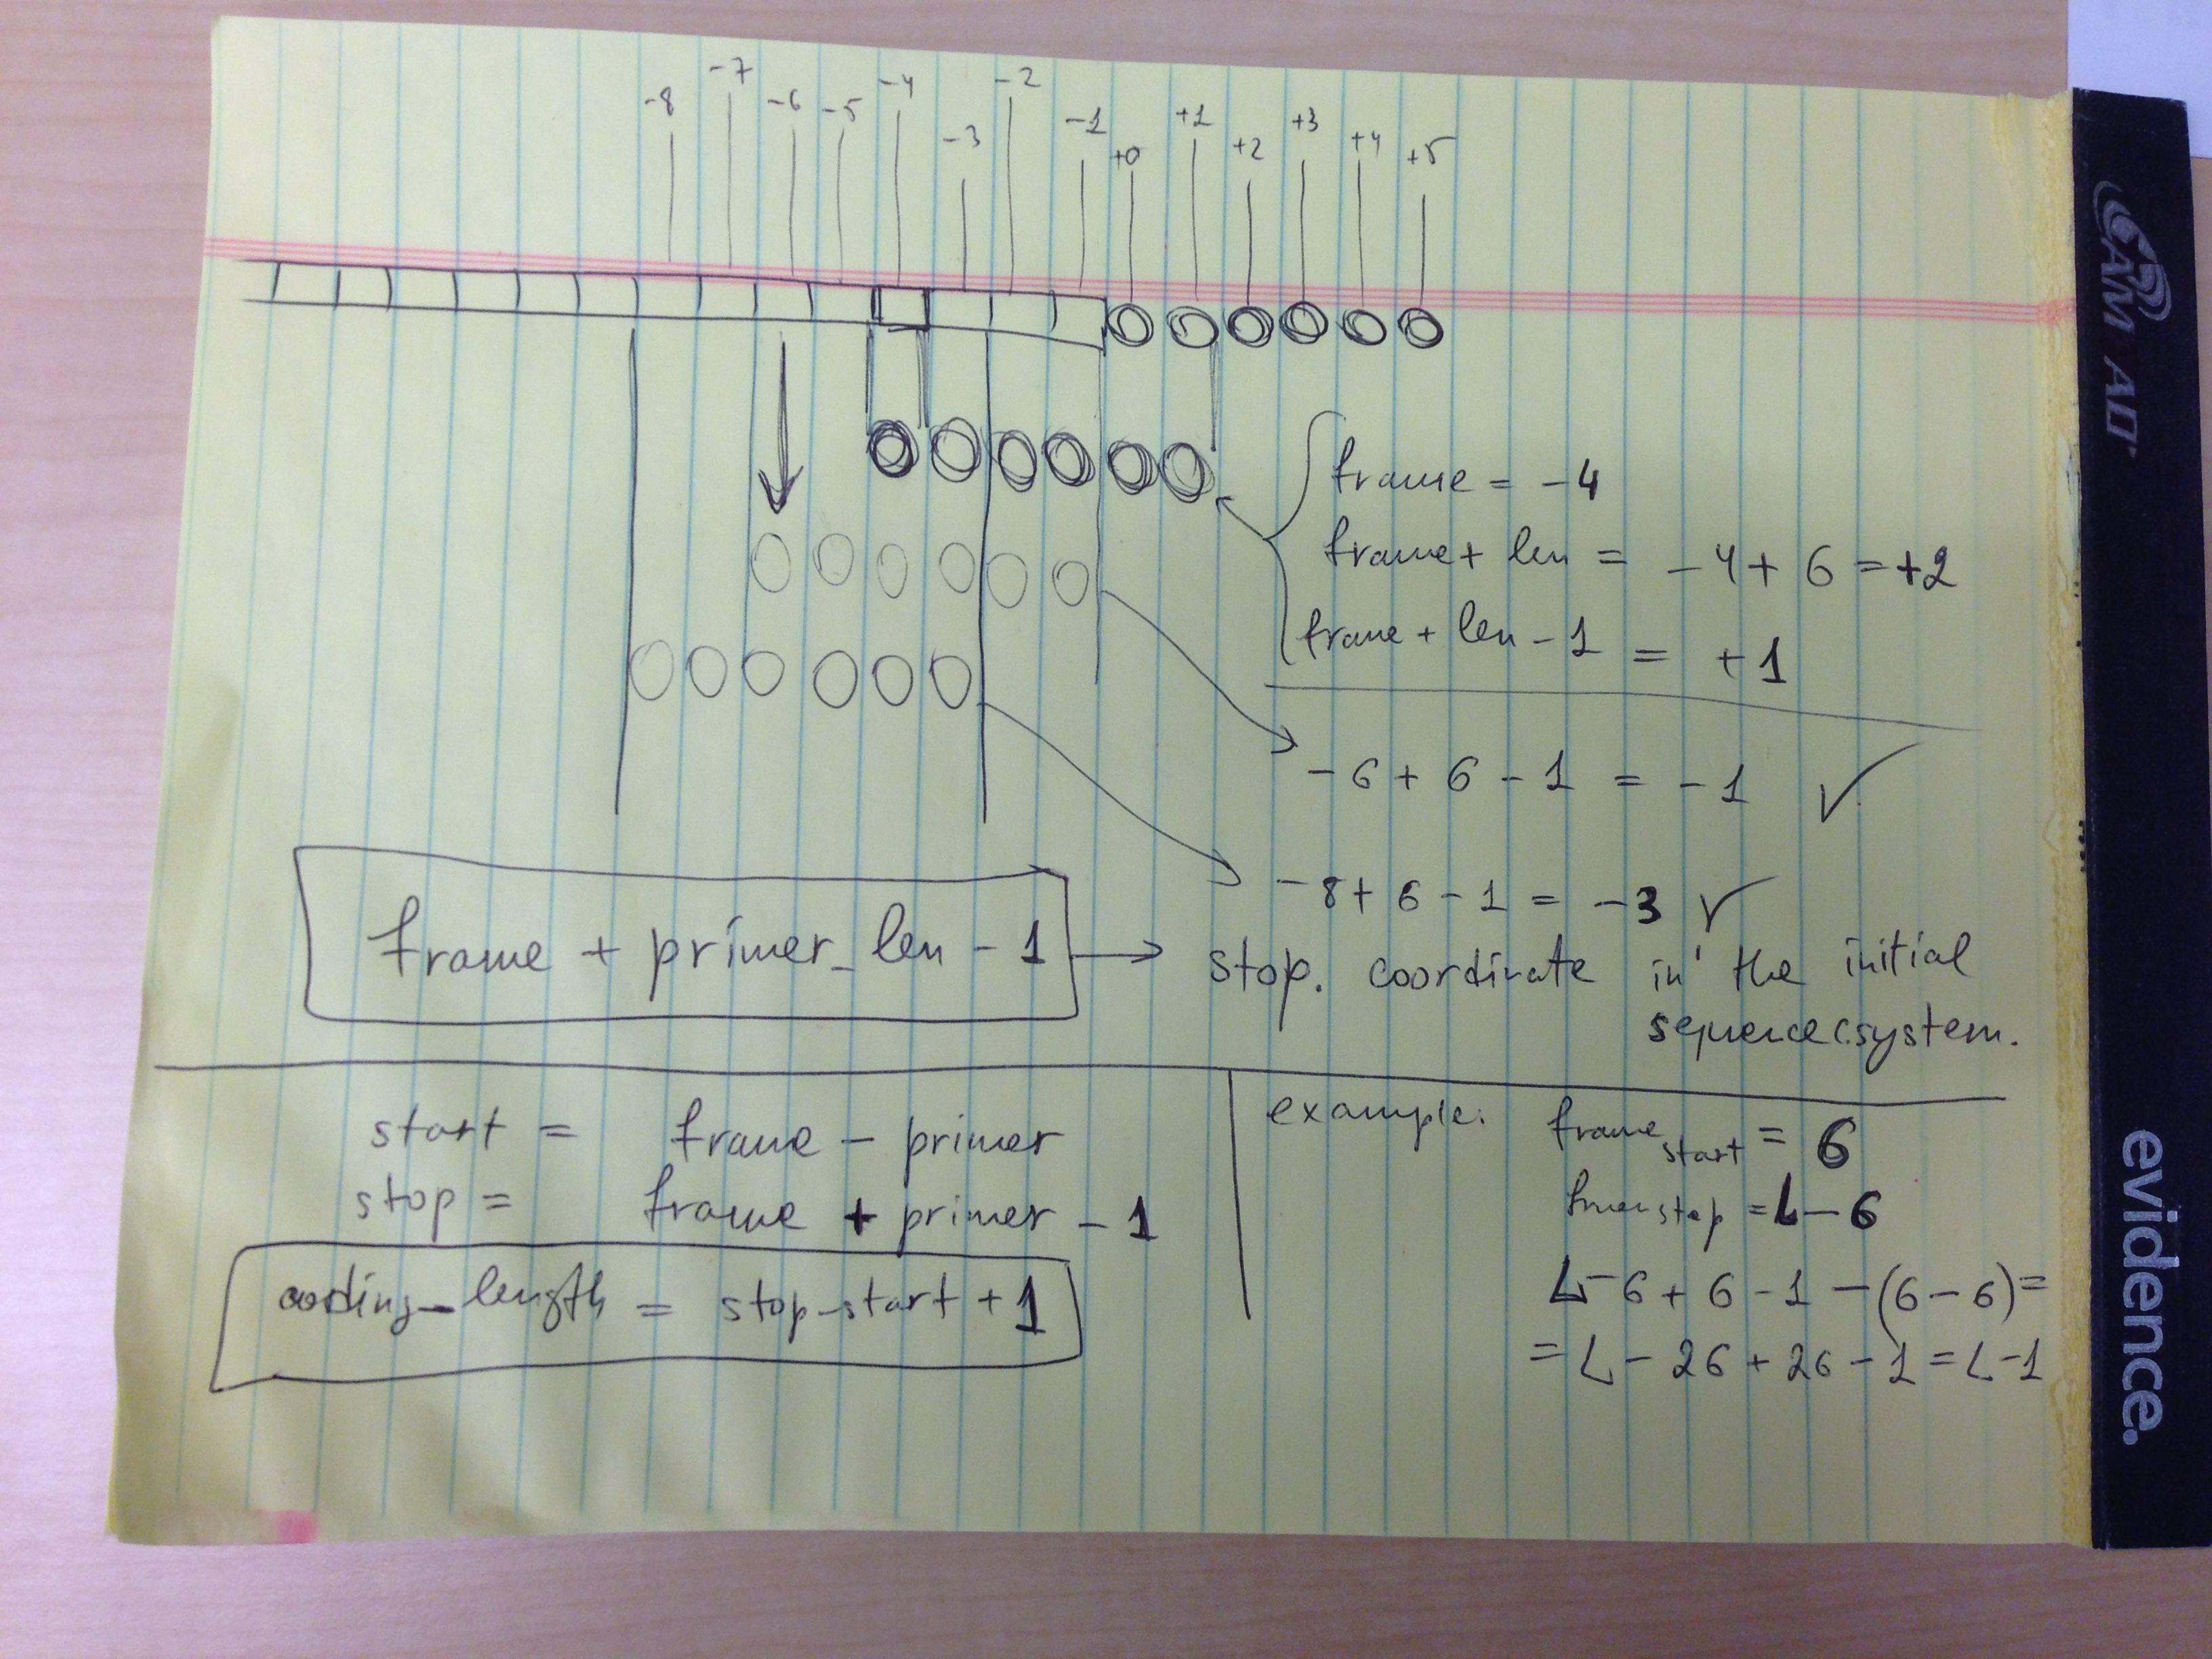 -8 -7 -6 -5 -4 -3 -2 -1 +0 +1 +2 +3 +4 +5
frame = -4
frame + len = -4 + 6 = +2
frame + len - 1 = +1
-6 + 6 - 1 = -1 ✓
-8 + 6 - 1 = -3 ✓
frame + primer_len - 1 → stop. coordinate in the initial
sequence system.
start = frame - primer
stop = frame + primer - 1
coding_length = stop-start + 1
example: frame start = 6
stop = L - 6
L - 6 + 6 - 1 - (6 - 6) =
= L - 26 + 26 - 1 = L - 1
CAM AD
evidence.